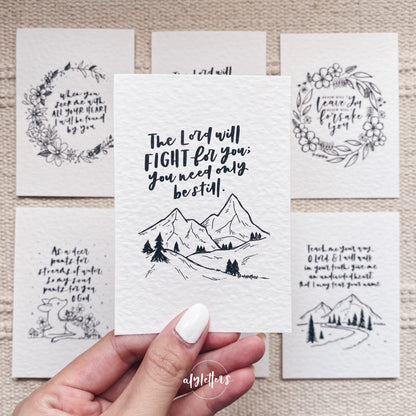 When you
seek me with
ALL YOUR HEART
I will be found
by you
The Lord will
never will I
leave you
never will I
forsake
you
The Lord will
FIGHT for you;
you need only
be still.
As a deer
pants for
streams of water,
so my soul
pants for you,
O God.
Teach me your way,
O Lord & I will walk
in your truth; give me
an undivided heart,
that I may fear your name.
alyletters